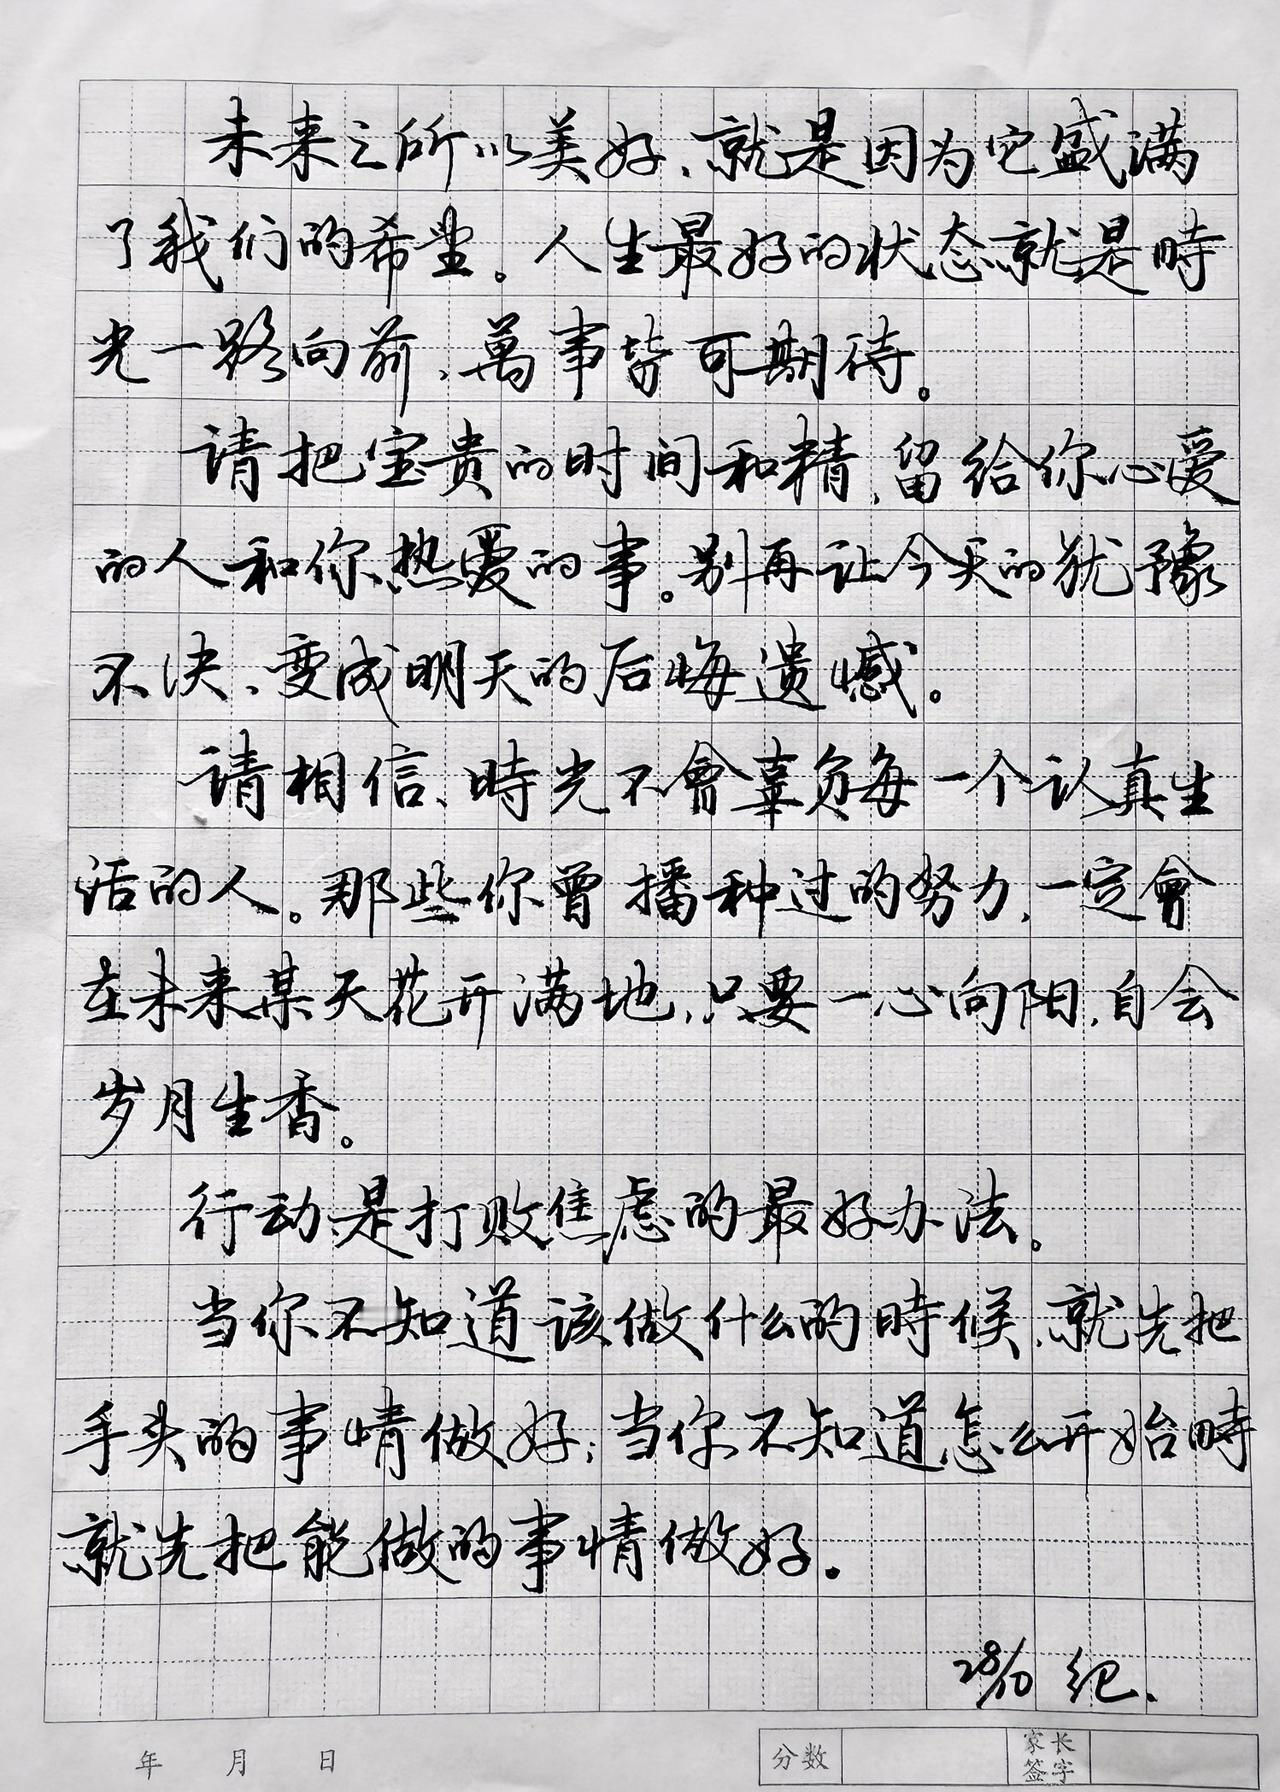 未来之所以美好、就是因为它盛满
了我们的希望。人生最好的状态就是時
光一路向前、萬事皆可期待。
请把宝贵的时间和精、留给你心爱
的人和你热爱的事。别再让今天的犹豫
不决、变成明天的后悔遗憾。
请相信、時光不會辜负每一个认真生
活的人。那些你曾播种过的努力、一定會
在未来某天花开满地、只要一心向阳、自会
岁月生香。
行动是打败焦虑的最好办法。
当你不知道该做什么的時候、就先把
手头的事情做好；当你不知道怎么开始時
就先把能做的事情做好。
28/10 纪、
年 月 日 分数 家长签字